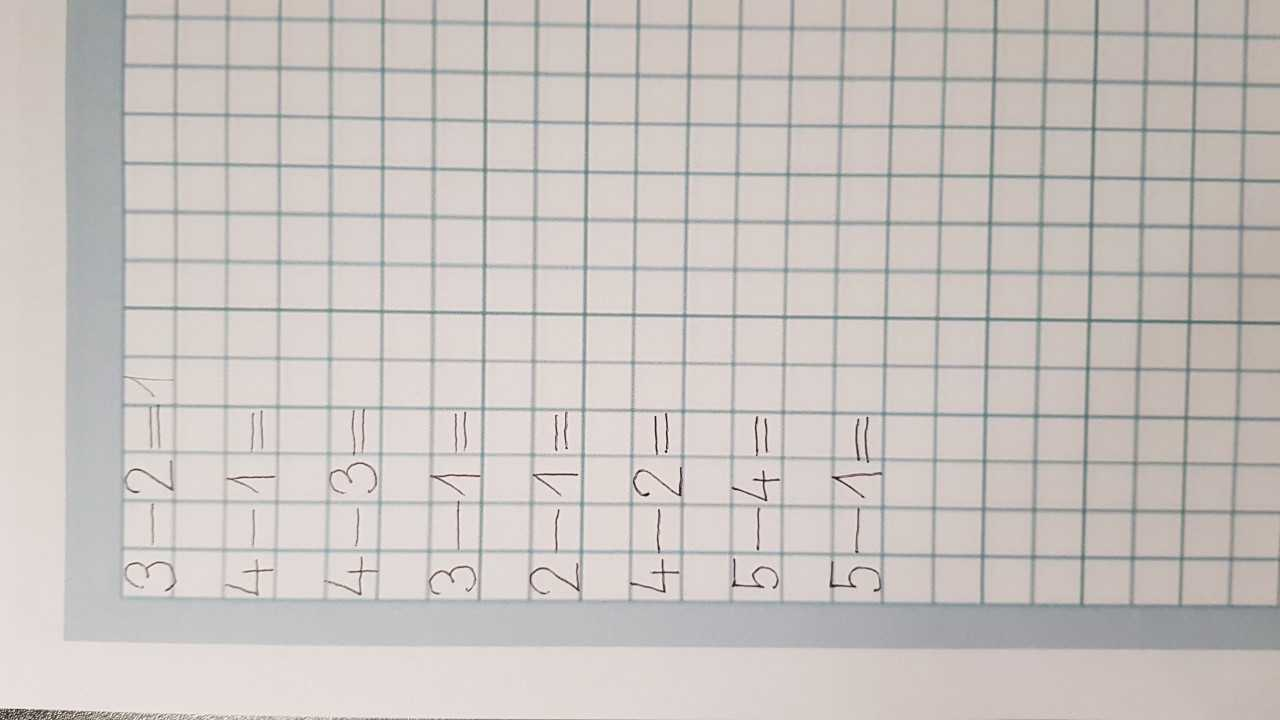 3-2=1
4-1=
4-3=
3-1=
2-1=
4-2=
5-4=
5-1=